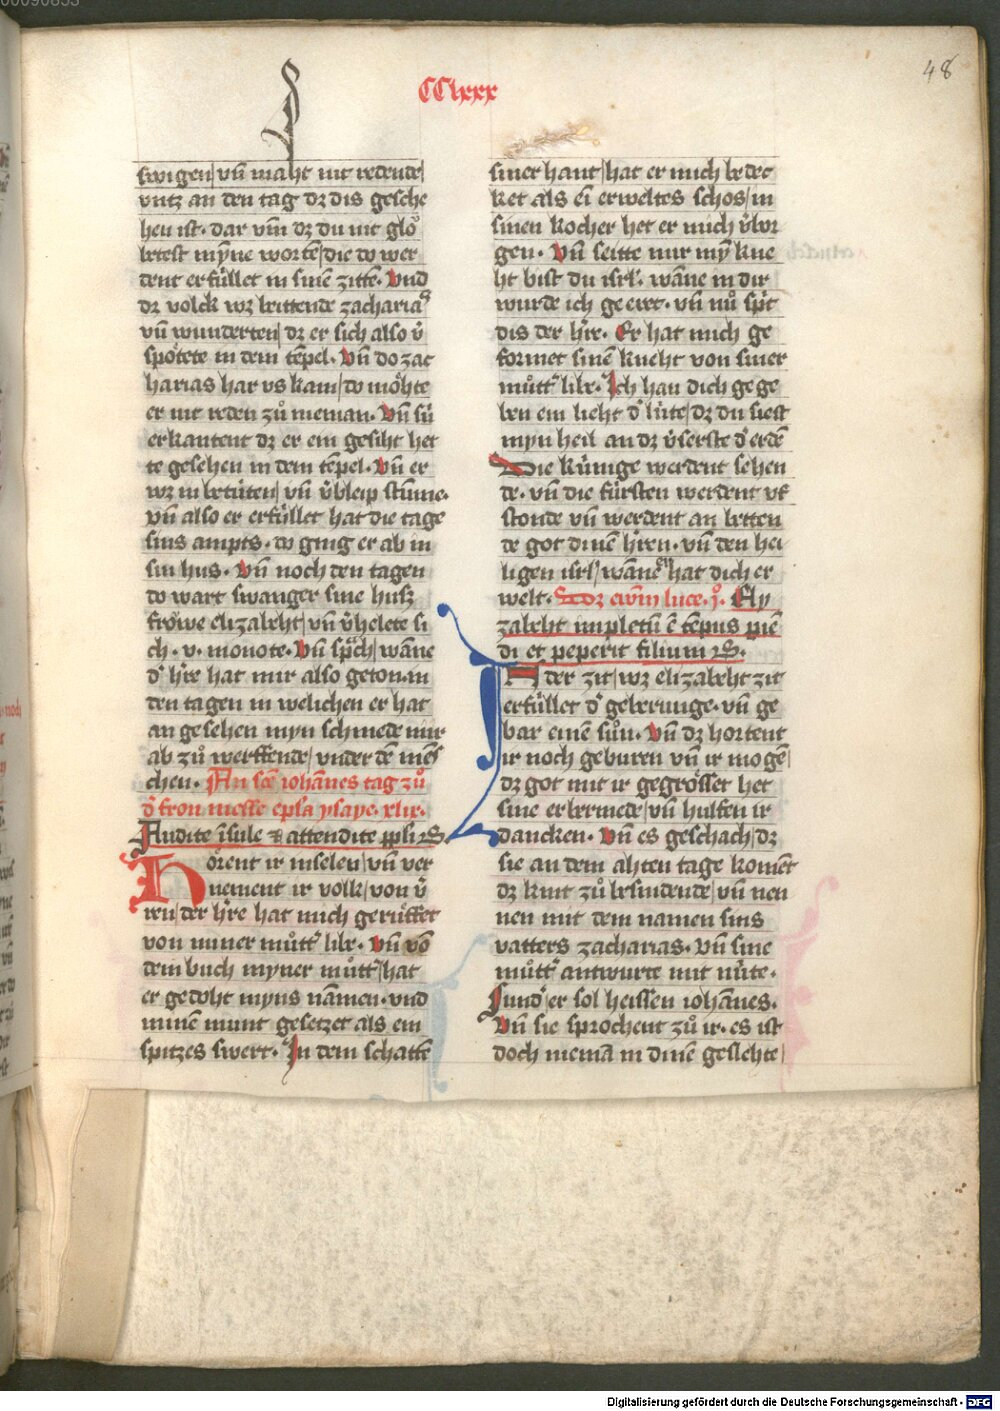 00090853
48
CClxxx
swigen / vn̄ maht nit redende /
vntz an den tag dz dis gesche
hen ist · dar vm̄ dz du nit glo͛
btest myne wortē / die do wer
dent erfüllet in sinē zittē · Vnd
dz volck wz bittende zacharias
vn̄ wunderten / dz er sich also v̄
spo͛tete in dem tēpel · Vn̄ do zac
harias har vs kam / do mo͛hte
er nit reden zů nieman · Vn̄ sü
erkantent dz er ein gesiht het
te gesehen in dem tēpel · Vn̄ er
wz in betüten / vn̄ v̄bleip stūme ·
vn̄ also er erfüllet hat die tage
sins ampts · do ging er ab in
sin hus · Vn̄ noch den tagen
do wart swanger sine husz
fro͛we elizabeht / vn̄ v̄helete si
ch · v · monote · Vn̄ sp̄ch / wāne
d' h're hat mir also geton · in
den tagen in welichen er hat
an gesehen myn schmede mir
ab zů werffende / vnder dē mēs
chen · An sāt iohānes tag zů
d' fron messe epl'a ysaye · xlix ·
Audite īsule & attendite ppl'i R̄ ·
Ho͛rent ir inselen / vn̄ ver
nement ir volk / von v̄
ren / der h're hat mich geru͛ffet
von miner můtt' libe · Vn̄ vō
dem buch myner můtt' / hat
er gedoht myns nāmen · vnd
minē munt gesetzet als ein
spitzes swert · In dem schattē
siner hant / hat er mich bedec
ket als ei erweltes schos / in
sinen kocher het er mich v̄bor
gen · Vn̄ seitte mir my̅ kne
ht bist du isrl' · wāne in dir
wurde ich geeret · vn̄ nů sp̄t
dis der h're · Er hat mich ge
formet sinē kneht von siner
můtt' libe · Ich han dich gege
ben ein lieht d' lüte / dz du siest
myn heil an dz v̄serste d' erdē
Die künige werdent sehen
de · vn̄ die fürsten werdent vf
stonde vn̄ werdent an betten
de got dinē h'ren · vn̄ den hei
ligen isrl' / wāne h' hat dich er
welt · Dz ewm̄ luce · j° · Ely
zabeht impletū ē tēpus piē
di et peperit filium R̄ ·
In der zit / wz elizabeht zit
erfüllet d' geberunge · vn̄ ge
bar einē sůn · Vn̄ dz hortent
ir noch geburen vn̄ ir mogē /
dz got mit ir gegrösset het
sine erbermede / vn̄ hulfen ir
dancken · Vn̄ es geschach / dz
sie an dem ahten tage komēt
dz kint zů besnidende / vn̄ nen
nen mit dem namen sins
vatters zacharias · Vn̄ sine
můtt' antwurte mit nüte ·
Sund' er sol heissen iohānes ·
Vn̄ sie sprochent zů ir · es ist
doch niemā in dinē geslehte /
Digitalisierung gefördert durch die Deutsche Forschungsgemeinschaft - DFG